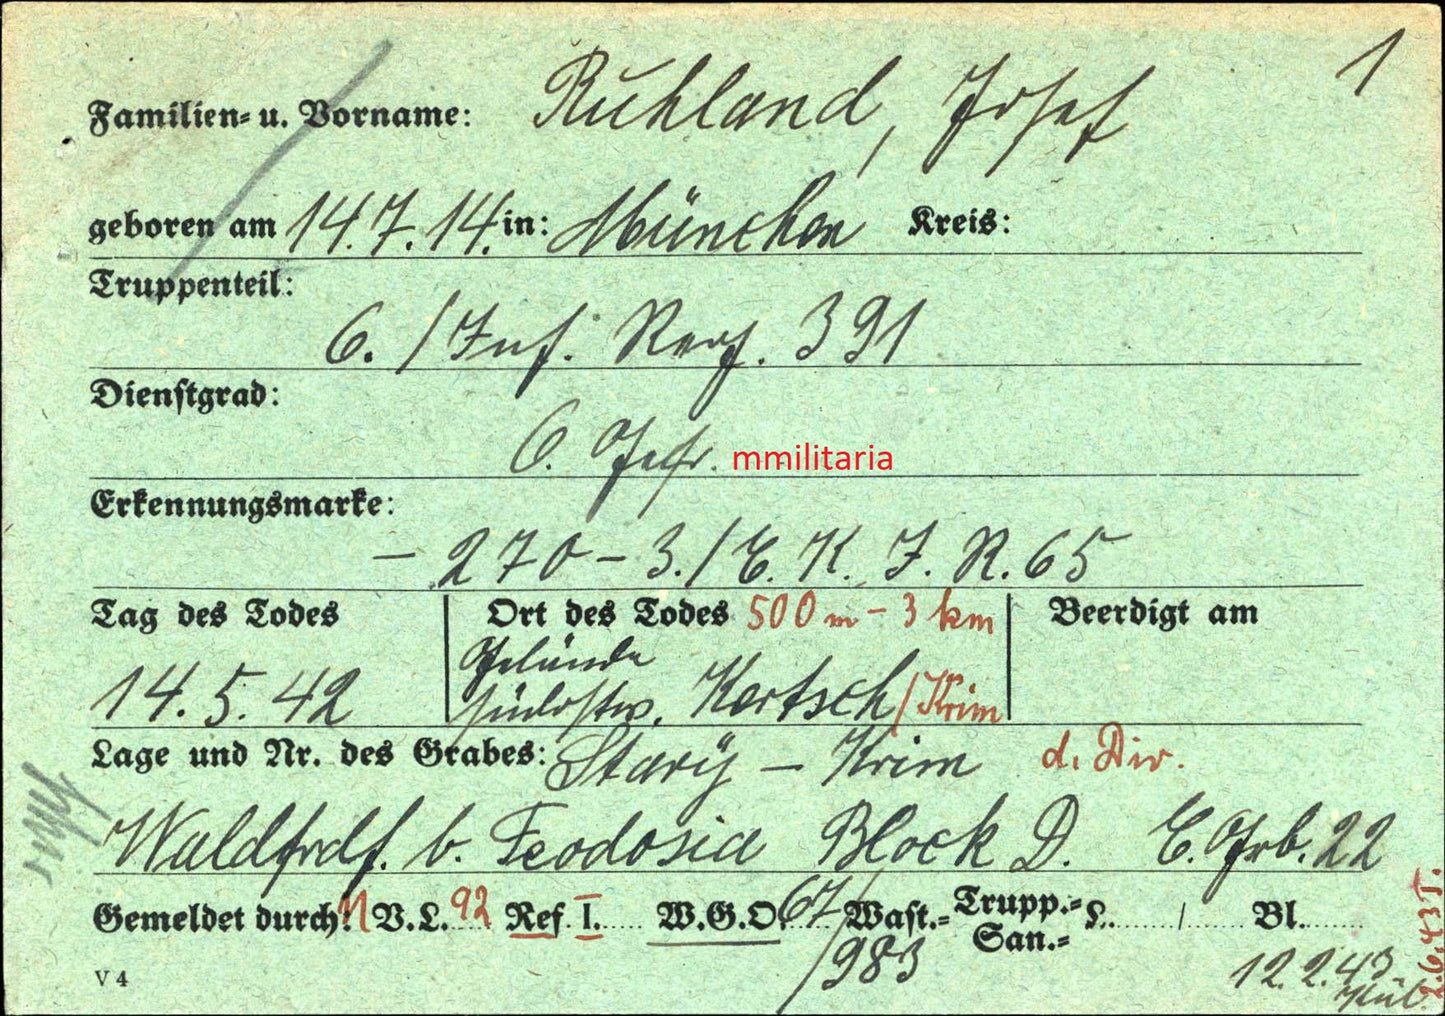 1
Familien- u. Vorname: Ruhland, Josef
geboren am 14.7.14. in: München Kreis:
Truppenteil:
6./Inf. Reg. 391
Dienstgrad:
O. Gefr. mmilitaria
Erkennungsmarke:
- 270 - 3./E. K. J. R. 65
Tag des Todes Ort des Todes 500 m - 3 km Beerdigt am
Gelände
14. 5. 42 südostw. Kertsch/Krim
Lage und Nr. des Grabes: Starÿ - Krim d. Div.
Waldfrdf. b. Feodosia Block D. E. Grb. 22
Gemeldet durch: V.L. 92 Ref. I. W.G.O. 67/ Wast.- Trupp.- San.- L. / Bl.
/983
V 4
12. 2. 43